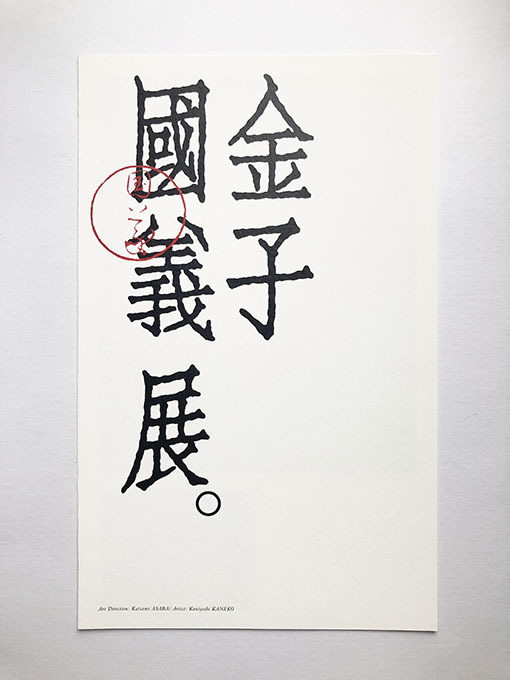 金子
國義展。
Art Direction: Katsumi ASABA/ Artist: Kuniyoshi KANEKO